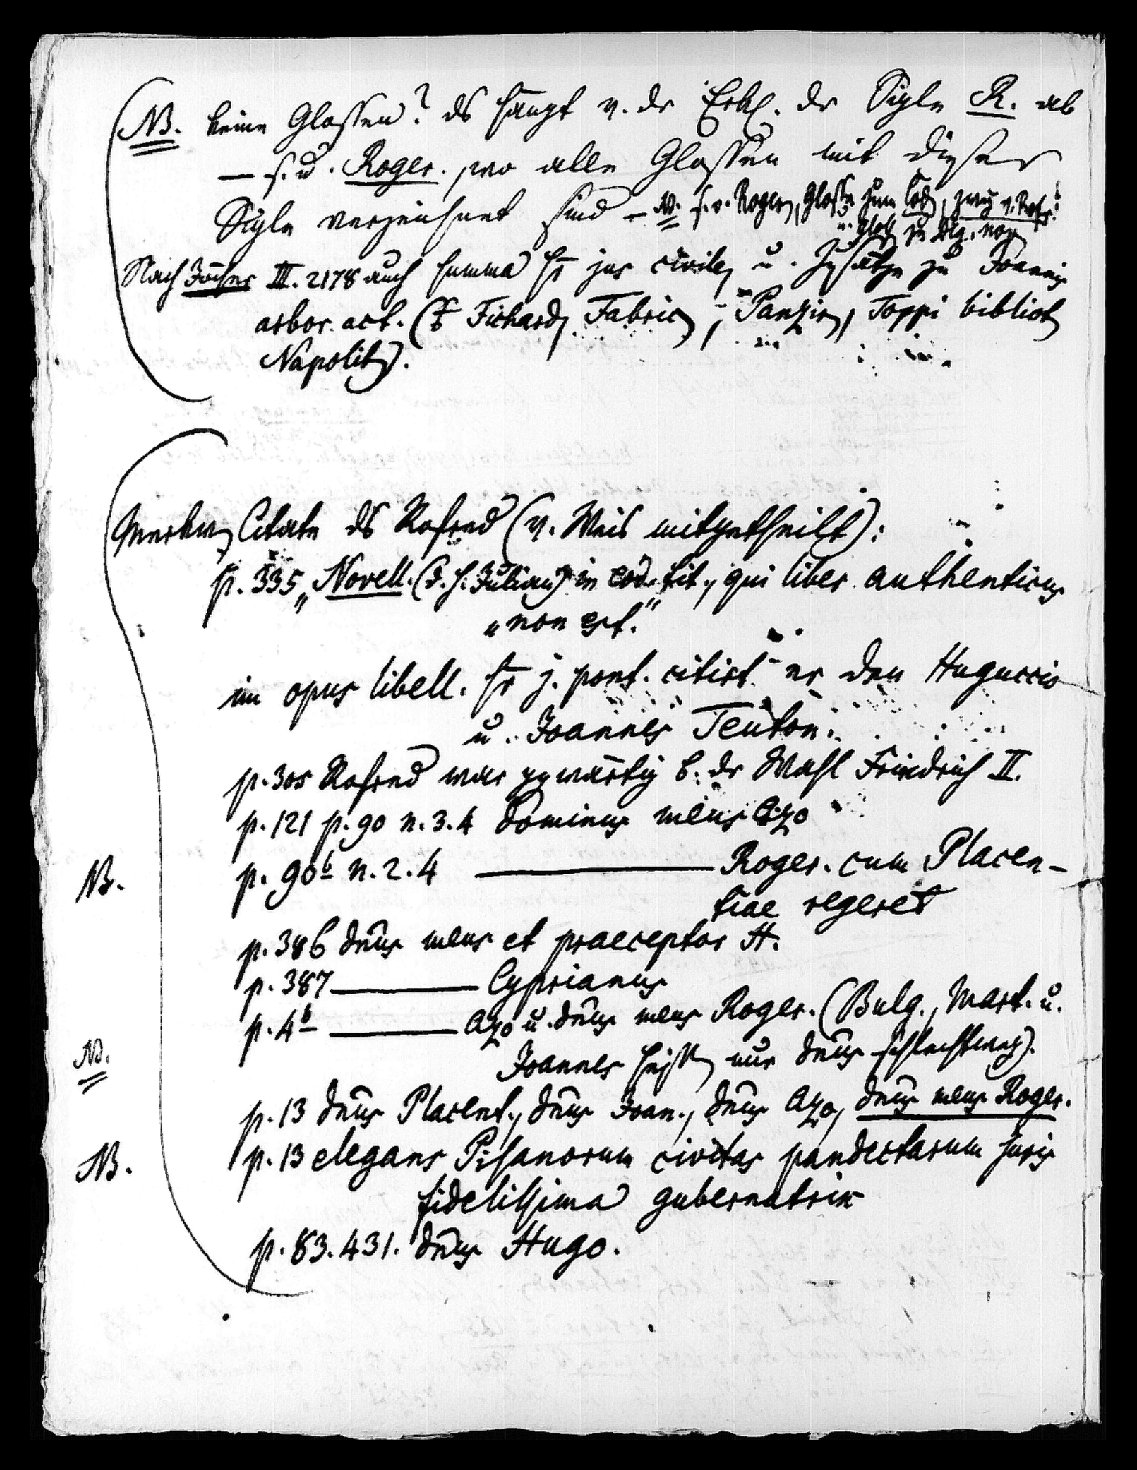 NB. keine Glossen? ds hängt v. dr Erkl. dr Sigle R. ab
— s. u. Roger., wo alle Glossen mit dieser
Sigle verzeichnet sind – NB. s. v. Roger, Glosse zum Cod,
u. Gloss zu Dig. nov
Nach Jöcher III. 2178 auch summa jur civile, u. Zusätze zu Joannis
arbor. act. (Fichard, Fabric, Panzir, Toppi bibliot
Napolit).
Merkw. Citate ds Rofred (v. Weis mitgetheilt):
p. 335 „Novell. (d. h. Julian) in cod. tit., qui liber authenticus
„non est."
im opus libell. j. pont. citirt er den Huguccio
u. Joannes Teuton.
p. 305 Rofred war ggwärtig b. dr Wahl Friedrich II.
p. 121 p. 90 n. 3. 4 dominus meus Azo
NB. p. 90b n. 2. 4 ——— Roger. cum Placen-
tiae regeret
p. 386 dnus meus et praeceptor H.
p. 387 ——— Cyprianus
p. 4b ——— Azo u. dnus meus Roger. (Bulg., Mart. u.
NB. Joannes heißt nur dnus schlechtweg).
p. 13 dnus Placent., dnus Joan., dnus Azo, dnus meus Roger.
NB. p. 13 elegans Pisanorum civitas pandectarum juris
fidelissima gubernatrix
p. 83. 431. dnus Hugo.